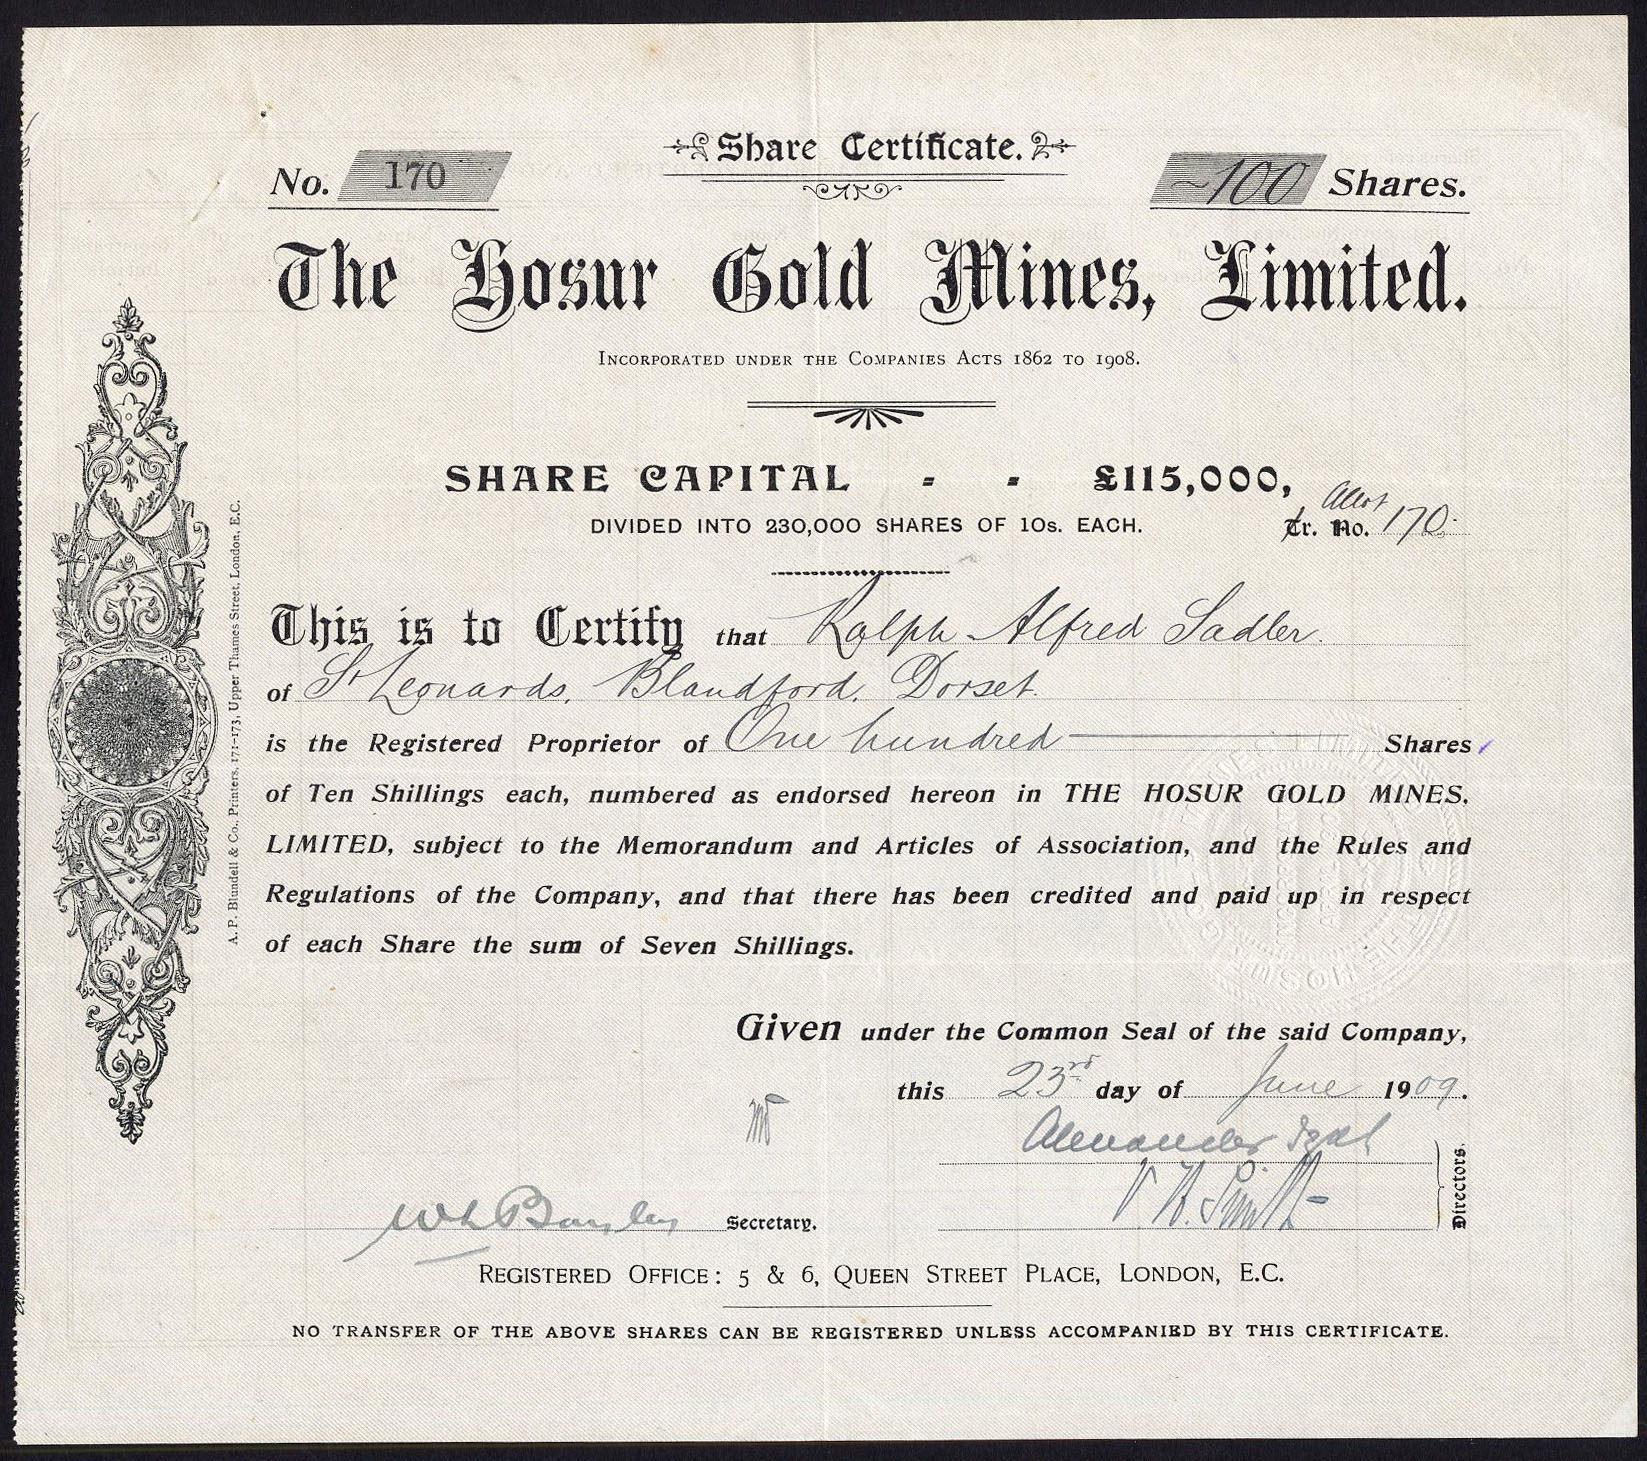 Share Certificate.
No. 170
100 Shares.
The Hosur Gold Mines, Limited.
Incorporated under the Companies Acts 1862 to 1908.
SHARE CAPITAL - - £115,000,
DIVIDED INTO 230,000 SHARES OF 10s. EACH.
Allot
Tr. No. 170
This is to Certify that Ralph Alfred Sadler.
of St Leonards, Blandford, Dorset.
is the Registered Proprietor of One hundred Shares
of Ten Shillings each, numbered as endorsed hereon in THE HOSUR GOLD MINES,
LIMITED, subject to the Memorandum and Articles of Association, and the Rules and
Regulations of the Company, and that there has been credited and paid up in respect
of each Share the sum of Seven Shillings.
Given under the Common Seal of the said Company,
this 23rd day of June 1909.
Alexander
V. H. Smith
Directors.
Secretary.
Registered Office: 5 & 6, Queen Street Place, London, E.C.
NO TRANSFER OF THE ABOVE SHARES CAN BE REGISTERED UNLESS ACCOMPANIED BY THIS CERTIFICATE.
A. P. Blundell & Co., Printers, 171-173, Upper Thames Street, London, E.C.